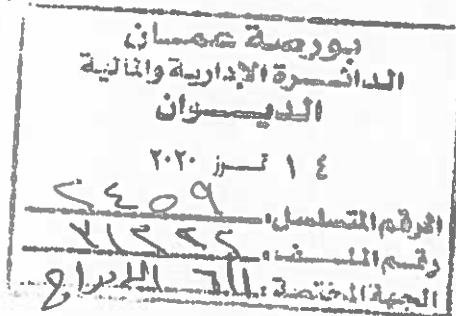 بورصة عمان
الدائرة الإدارية والمالية
الديوان
١٤ تموز ٢٠٢٠
الرقم المتسلسل: ٢٤٥٩
رقم الملف:
الجهة المختصة: الإدراج